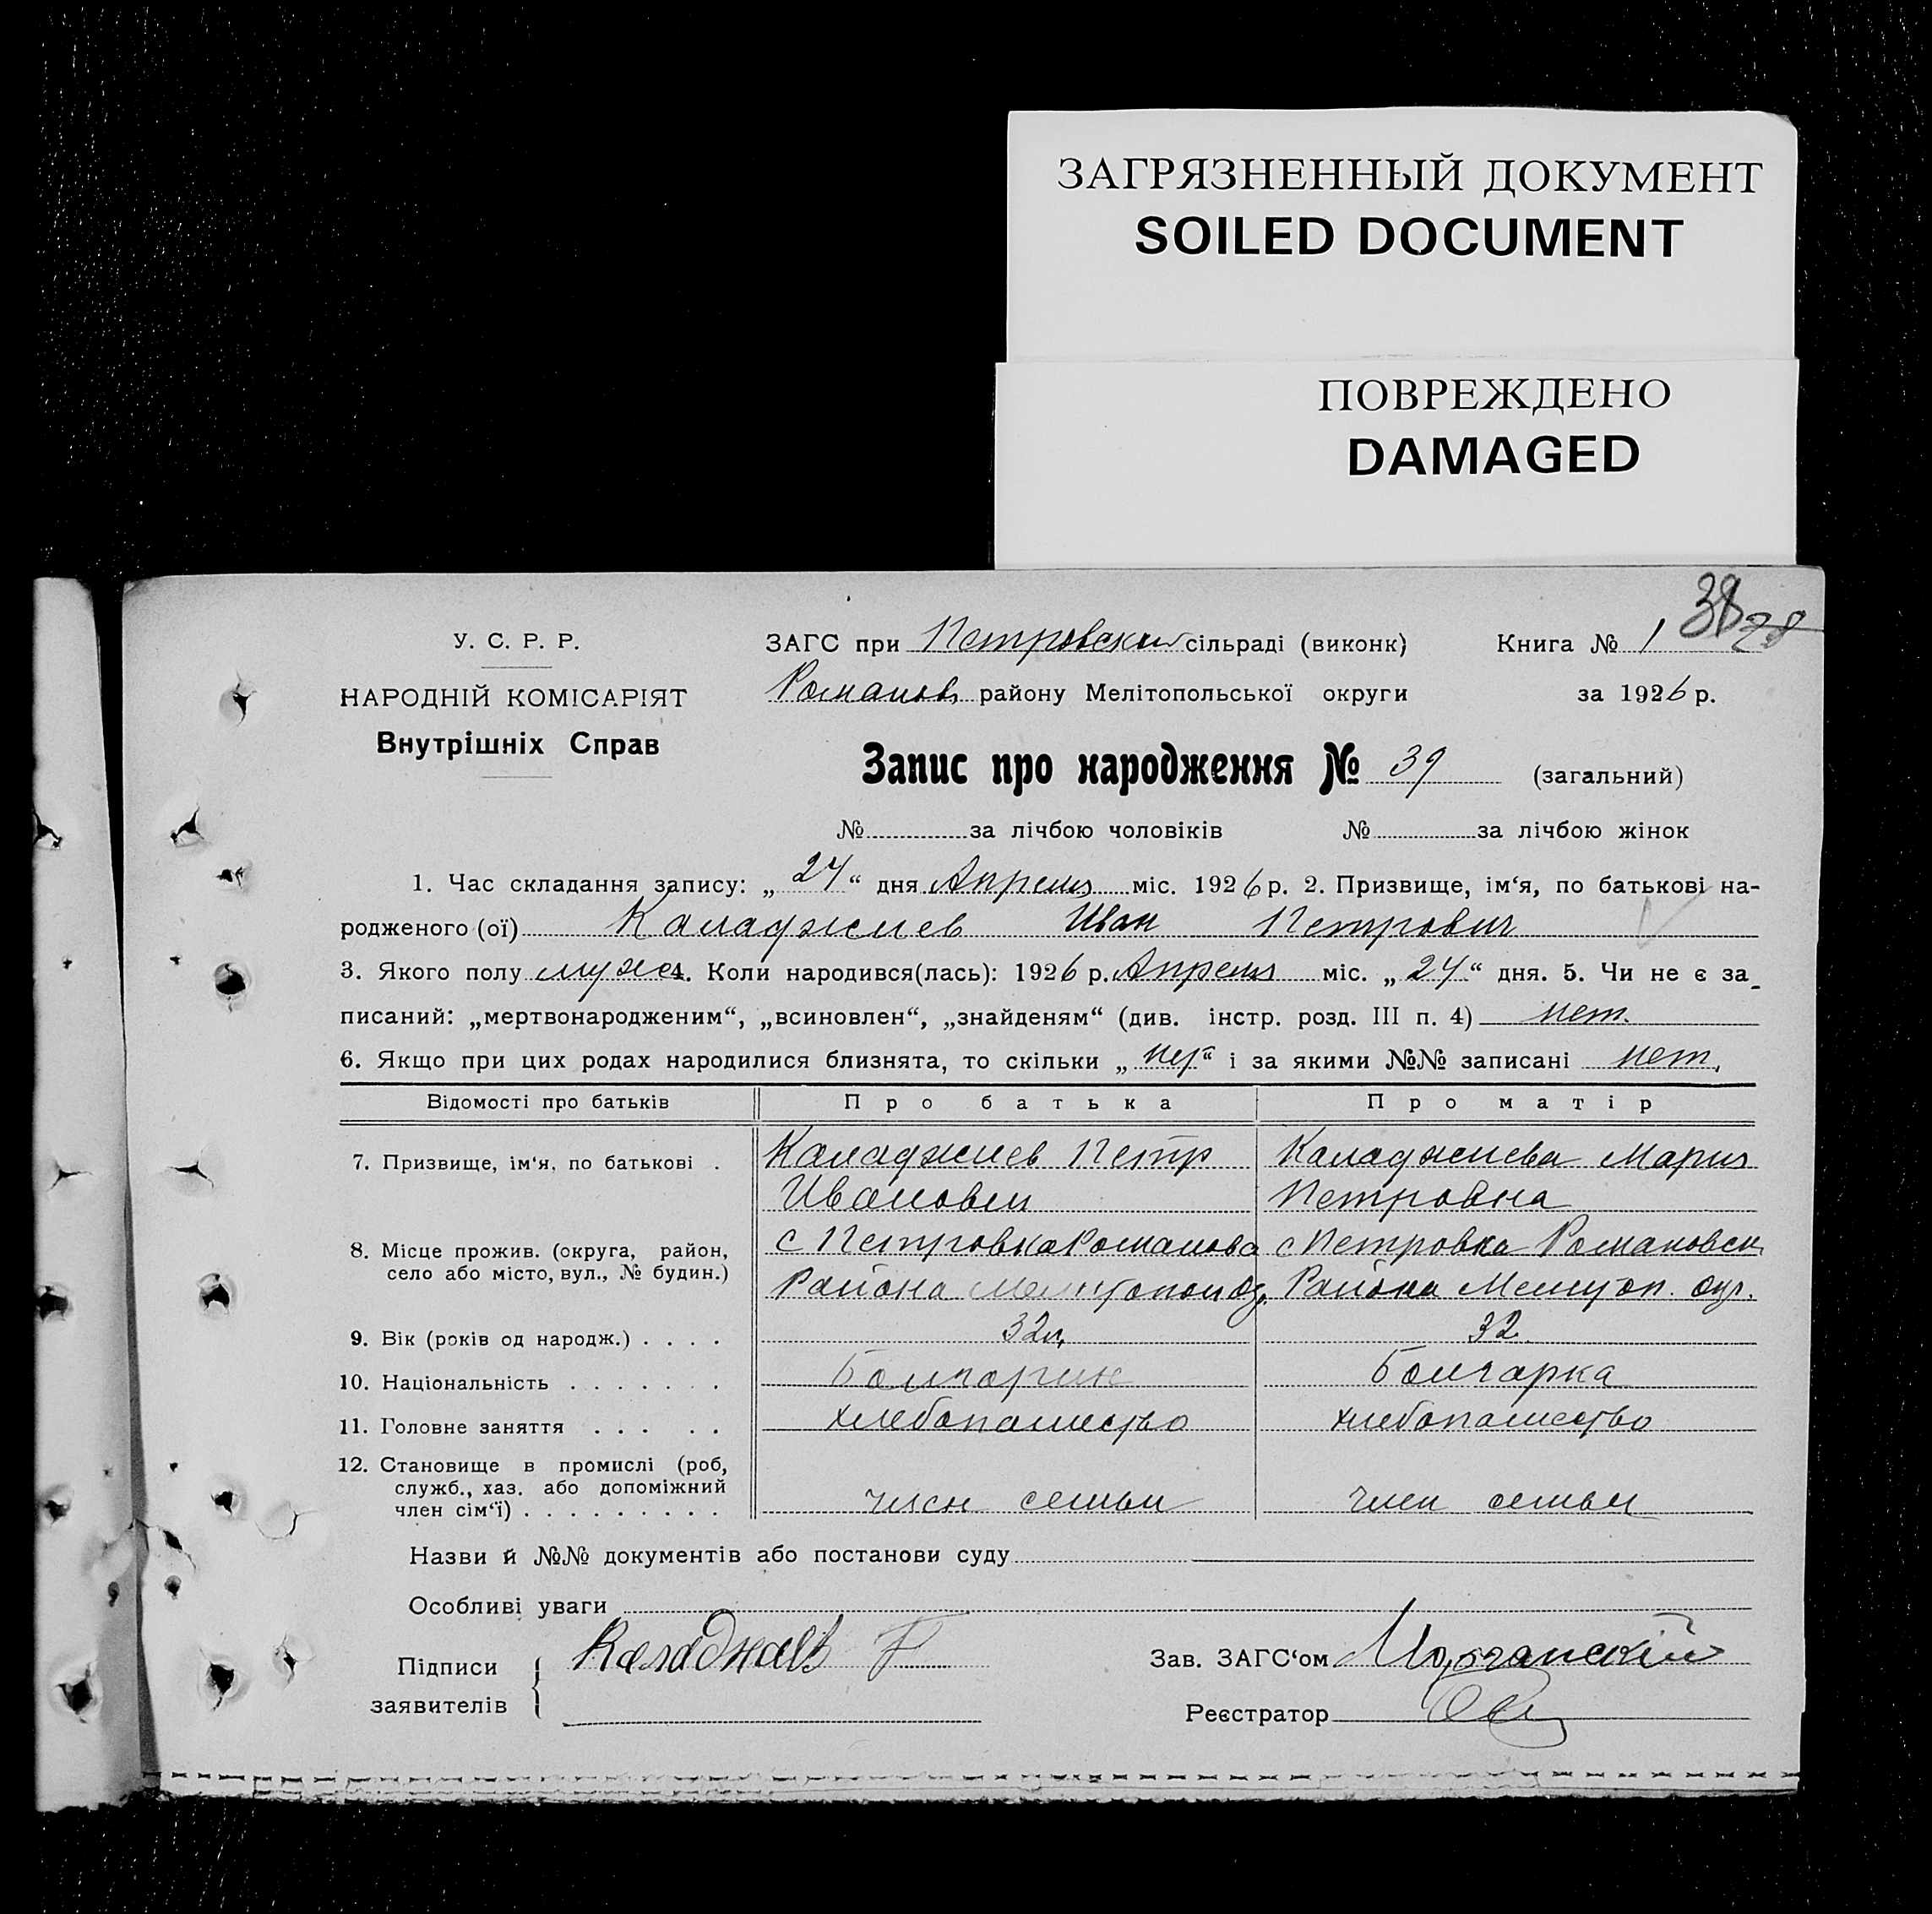 ЗАГРЯЗНЕННЫЙ ДОКУМЕНТ
SOILED DOCUMENT
ПОВРЕЖДЕНО
DAMAGED
38 28
У. С. Р. Р. ЗАГС при Петровский сільраді (виконк) Книга № 1
НАРОДНІЙ КОМІСАРІЯТ Романов. району Мелітопольської округи за 1926 р.
Внутрішніх Справ
Запис про народження № 39 (загальний)
№ за лічбою чоловіків № за лічбою жінок
1. Час складання запису: „24“ дня Апреля міс. 1926 р. 2. Призвище, ім‘я, по батькові на-
родженого (ої) Каладжиев Иван Петрович
3. Якого полу муж 4. Коли народився(лась): 1926 р. Апреля міс. „24“ дня. 5. Чи не є за-
писаний: „мертвонародженим“, „всиновлен“, „знайденям“ (див. інстр. розд. III п. 4) нет.
6. Якщо при цих родах народилися близнята, то скільки „нет“ і за якими №№ записані нет.
Відомості про батьків Про батька Про матір
7. Призвище, ім‘я, по батькові . Каладжиев Петр Каладжиева Мария
Иванович Петровна
8. Місце прожив. (округа, район, с Петровка Романова с Петровка Романовск
село або місто, вул., № будин.) Района Района Мелитоп. окр.
9. Вік (років од народж.) . . . . 32 л. 32
10. Національність . . . . . . . Болгарин Болгарка
11. Головне заняття . . . . . хлебопашество хлебопашество
12. Становище в промислі (роб,
служб., хаз. або допоміжний
член сім‘ї) . . . . . . . . . член семьи член семьи
Назви й №№ документів або постанови суду
Особливі уваги
Підписи Каладжиев П Зав. ЗАГС‘ом
заявителів Реєстратор